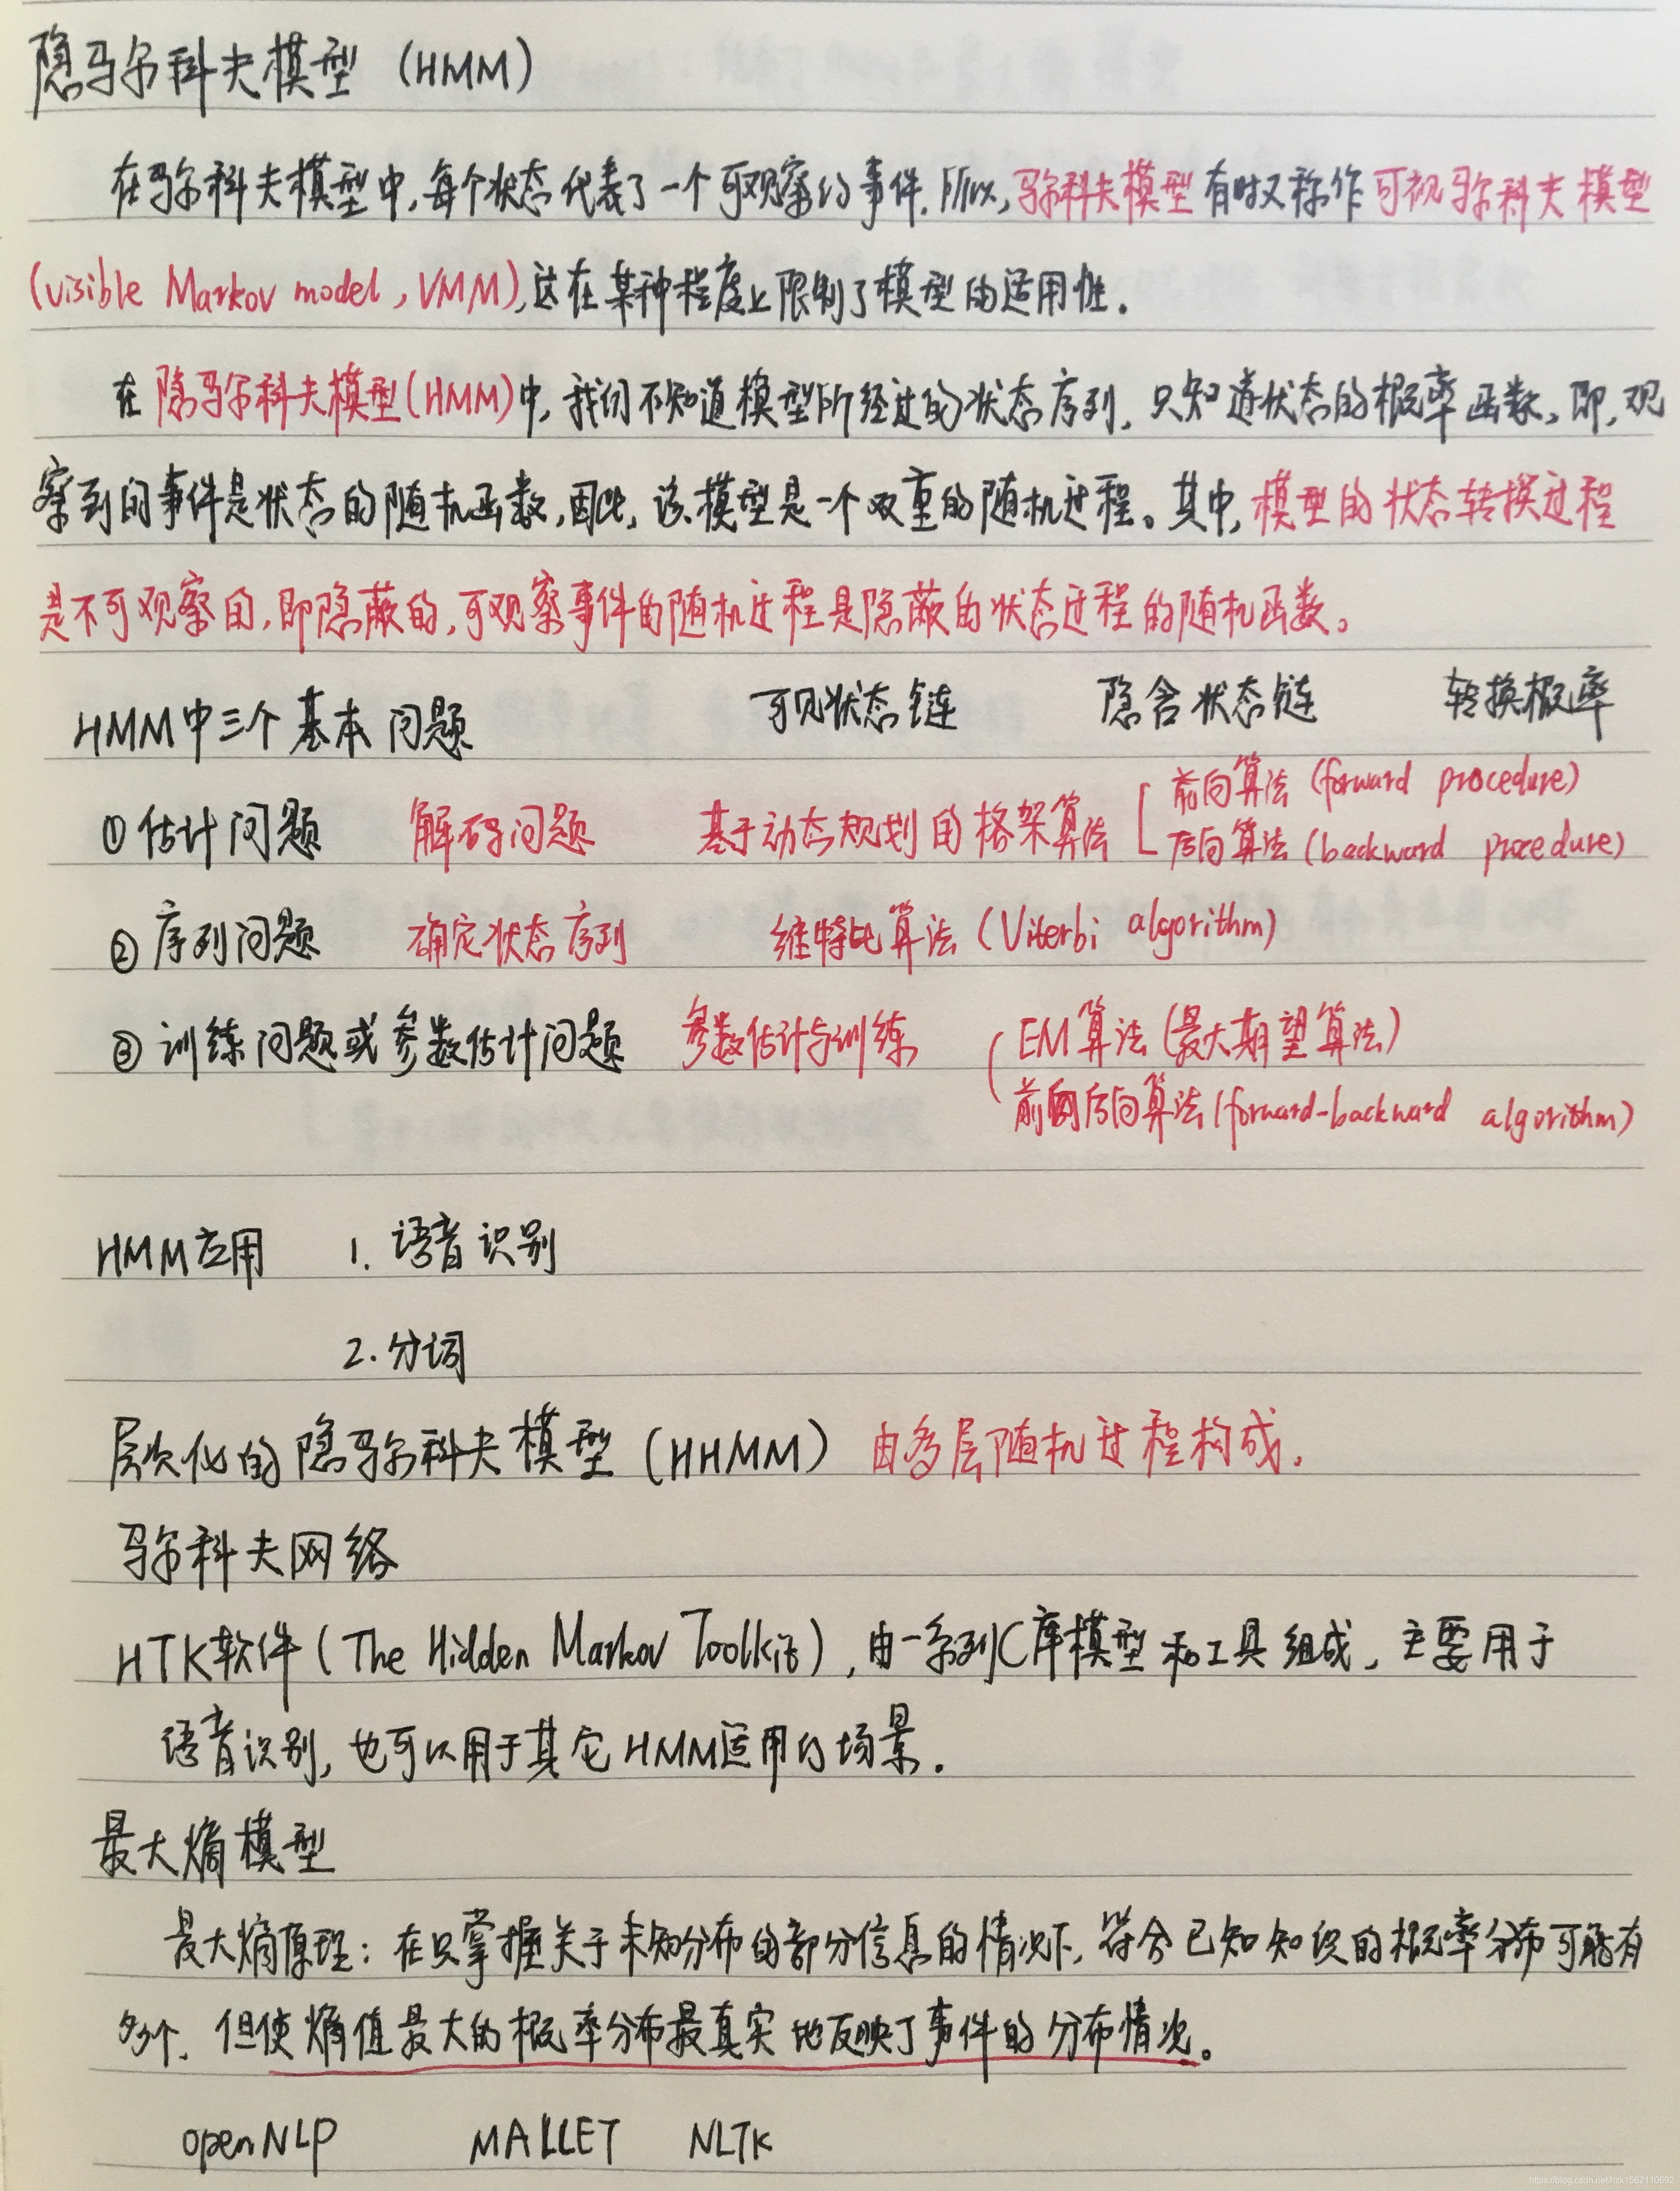 隐马尔科夫模型 (HMM)
在马尔科夫模型中,每个状态代表了一个可观察的事件.所以,马尔科夫模型有时又称作可视马尔科夫模型
(visible Markov model,VMM),这在某种程度上限制了模型的适用性.
在隐马尔科夫模型(HMM)中,我们不知道模型所经过的状态序列,只知道状态的概率函数,即,观
察到的事件是状态的随机函数,因此,该模型是一个双重的随机过程。其中,模型的状态转换过程
是不可观察的,即隐蔽的,可观察事件的随机过程是隐蔽的状态过程的随机函数。
HMM中三个基本问题 可见状态链 隐含状态链 转换概率
①估计问题 解码问题 基于动态规划的格架算法 前向算法 (forward procedure)
后向算法 (backward procedure)
②序列问题 确定状态序列 维特比算法 (Viterbi algorithm)
③训练问题或参数估计问题 参数估计与训练 EM算法(最大期望算法)
前向后向算法(forward-backward algorithm)
HMM应用 1. 语音识别
2.分词
层次化的隐马尔科夫模型 (HHMM) 由多层随机过程构成.
马尔科夫网络
HTK软件 (The Hidden Markov Toolkit),由一系列C库模型和工具组成,主要用于
语音识别,也可以用于其它HMM适用的场景.
最大熵模型
最大熵原理:在只掌握关于未知分布的部分信息的情况下,符合已知知识的概率分布可能有
多个,但使熵值最大的概率分布最真实地反映了事件的分布情况。
openNLP MALLET NLTK
https://blog.csdn.net/hzk1562110692